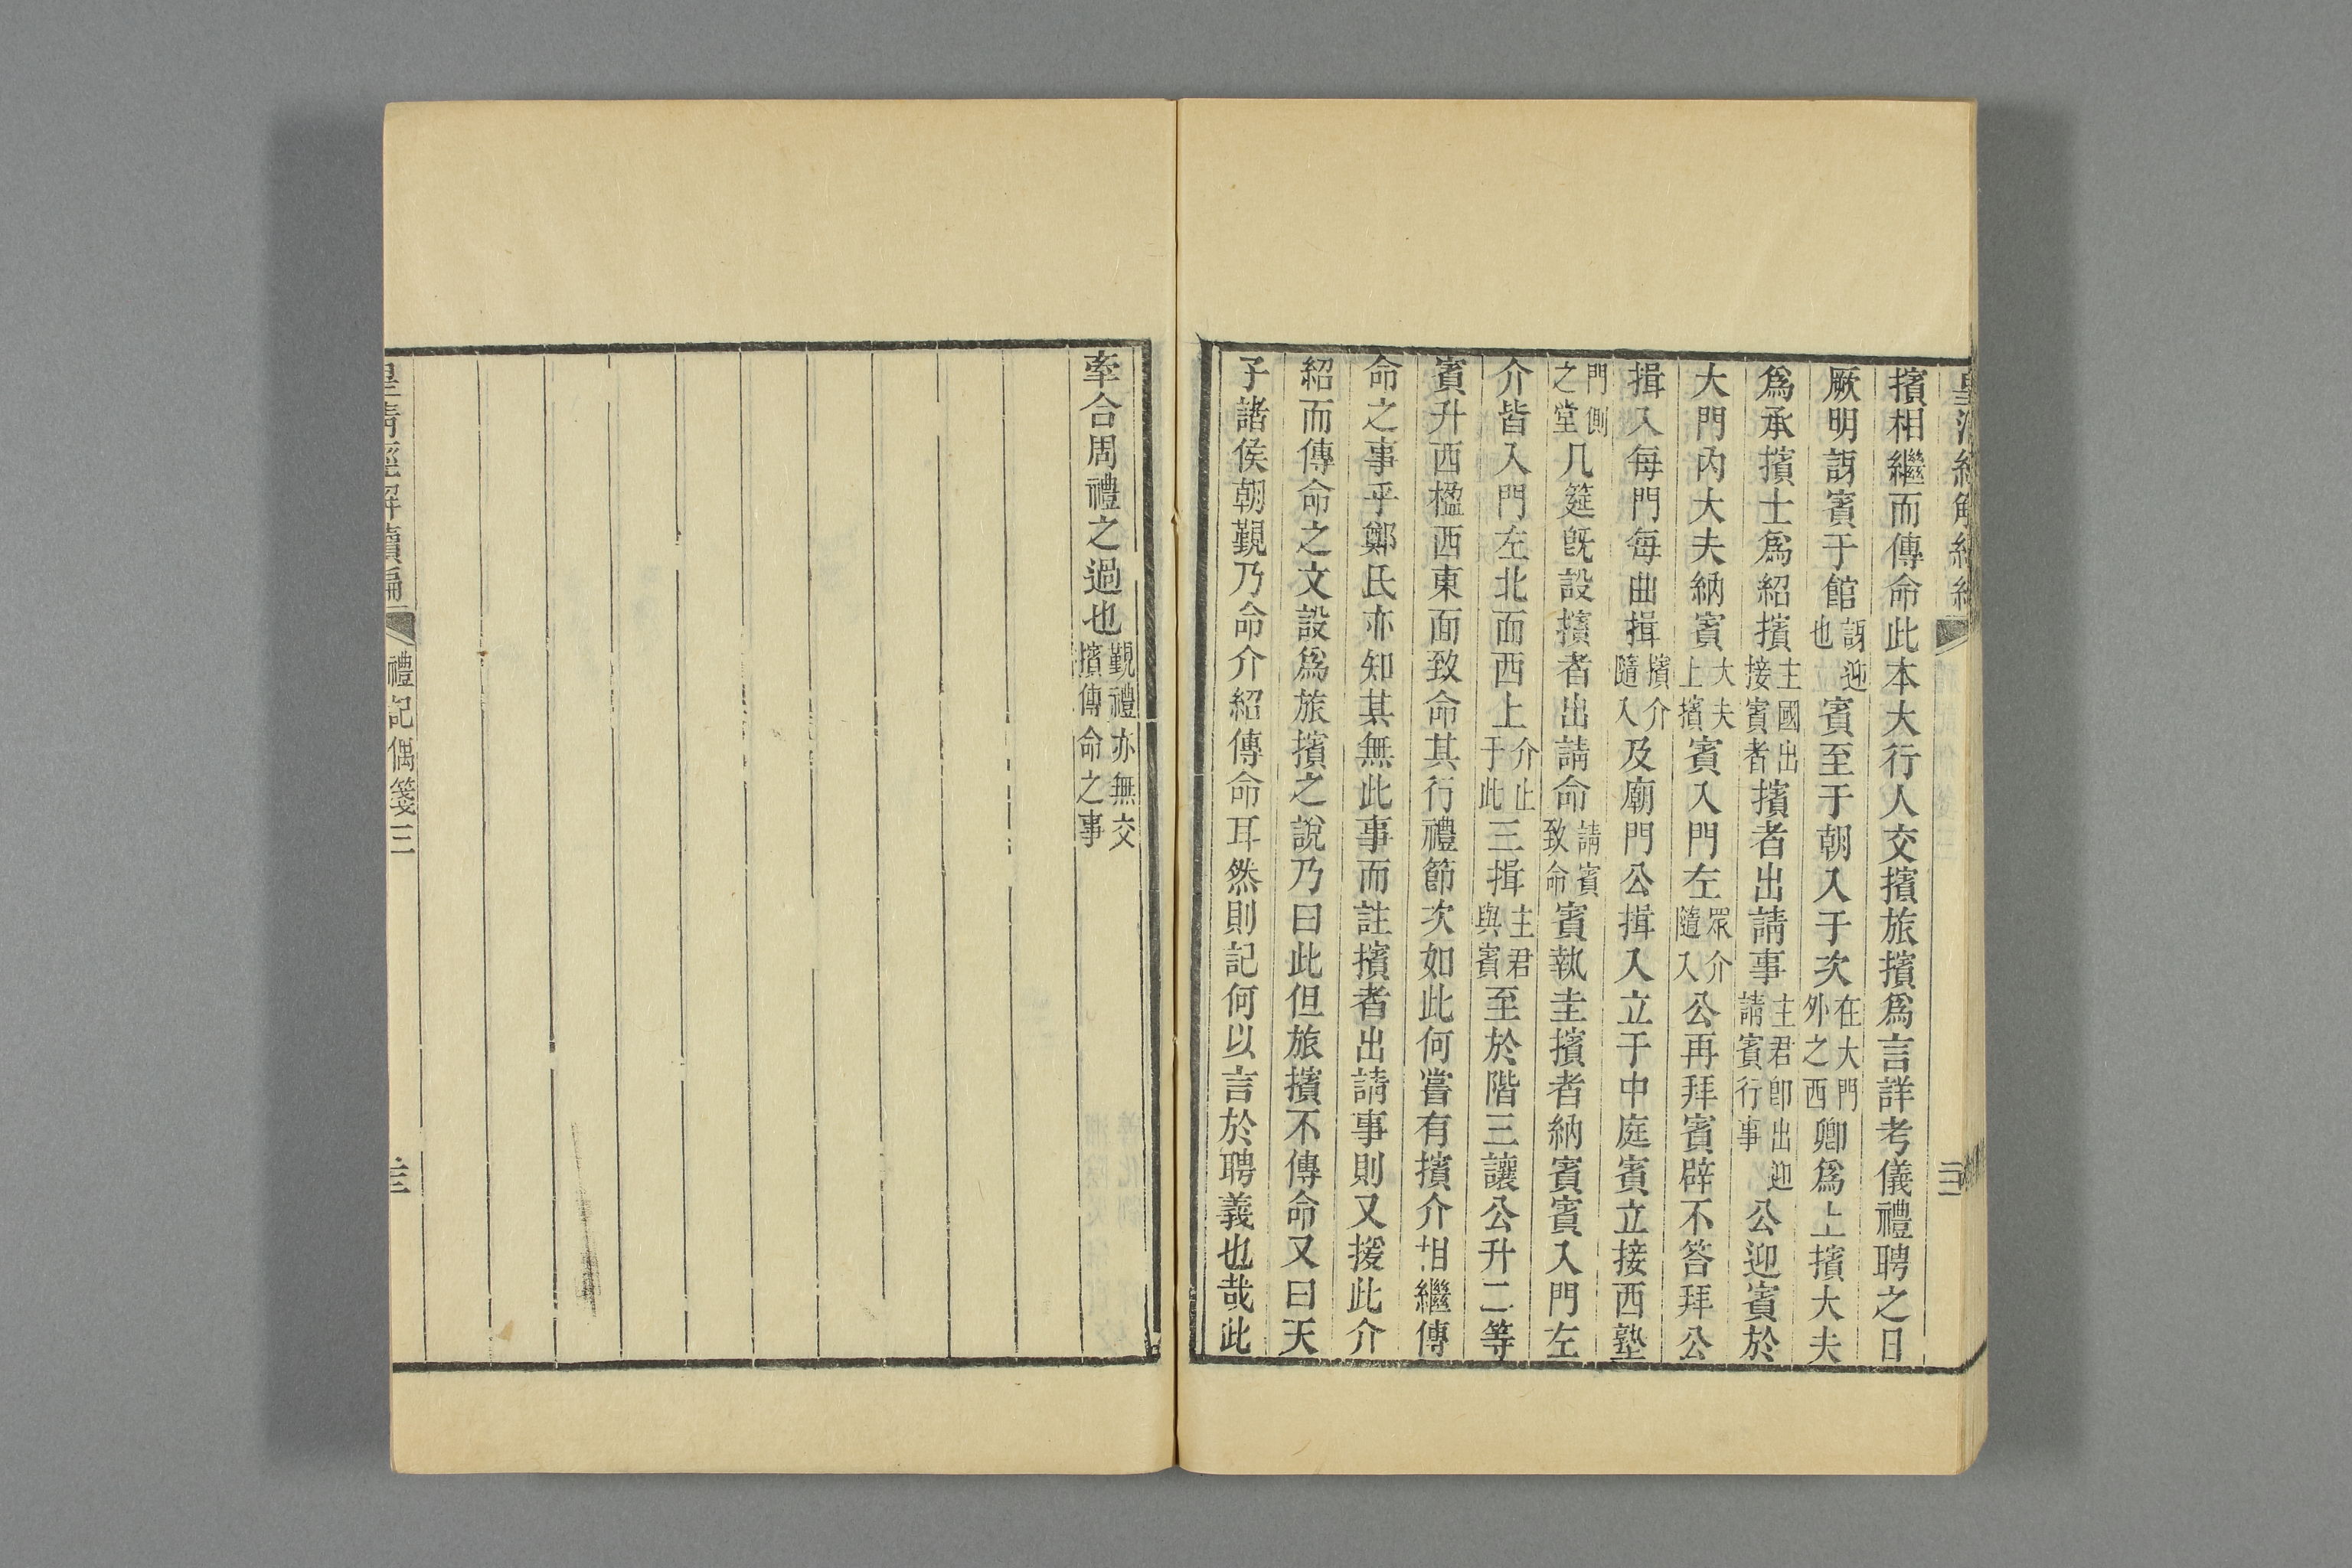 擯相繼而傳命此本大行人交擯旅擯爲言詳考儀禮聘之日
厥明訝賓于館訝迎也賓至于朝入于次在大門外之西卿爲上擯大夫
爲承擯士爲紹擯主國出接賓者擯者出請事主君卽出迎請賓行事公迎賓於
大門內大夫納賓大夫上擯賓入門左眾介隨入公再拜賓辟不答拜公
揖入每門每曲揖擯介隨入及廟門公揖入立于中庭賓立接西塾
門側之堂几筵旣設擯者出請命請賓致命賓執圭擯者納賓賓入門左
介皆入門左北面西上介止于此三揖主君與賓至於階三讓公升二等
賓升西楹西東面致命其行禮節次如此何嘗有擯介相繼傳
命之事乎鄭氏亦知其無此事而註擯者出請事則又援此介
紹而傳命之文設爲旅擯之說乃曰此但旅擯不傳命又曰天
子諸侯朝覲乃命介紹傳命耳然則記何以言於聘義也哉此
牽合周禮之過也覲禮亦無交擯傳命之事
皇清經解續編 禮記偶箋三